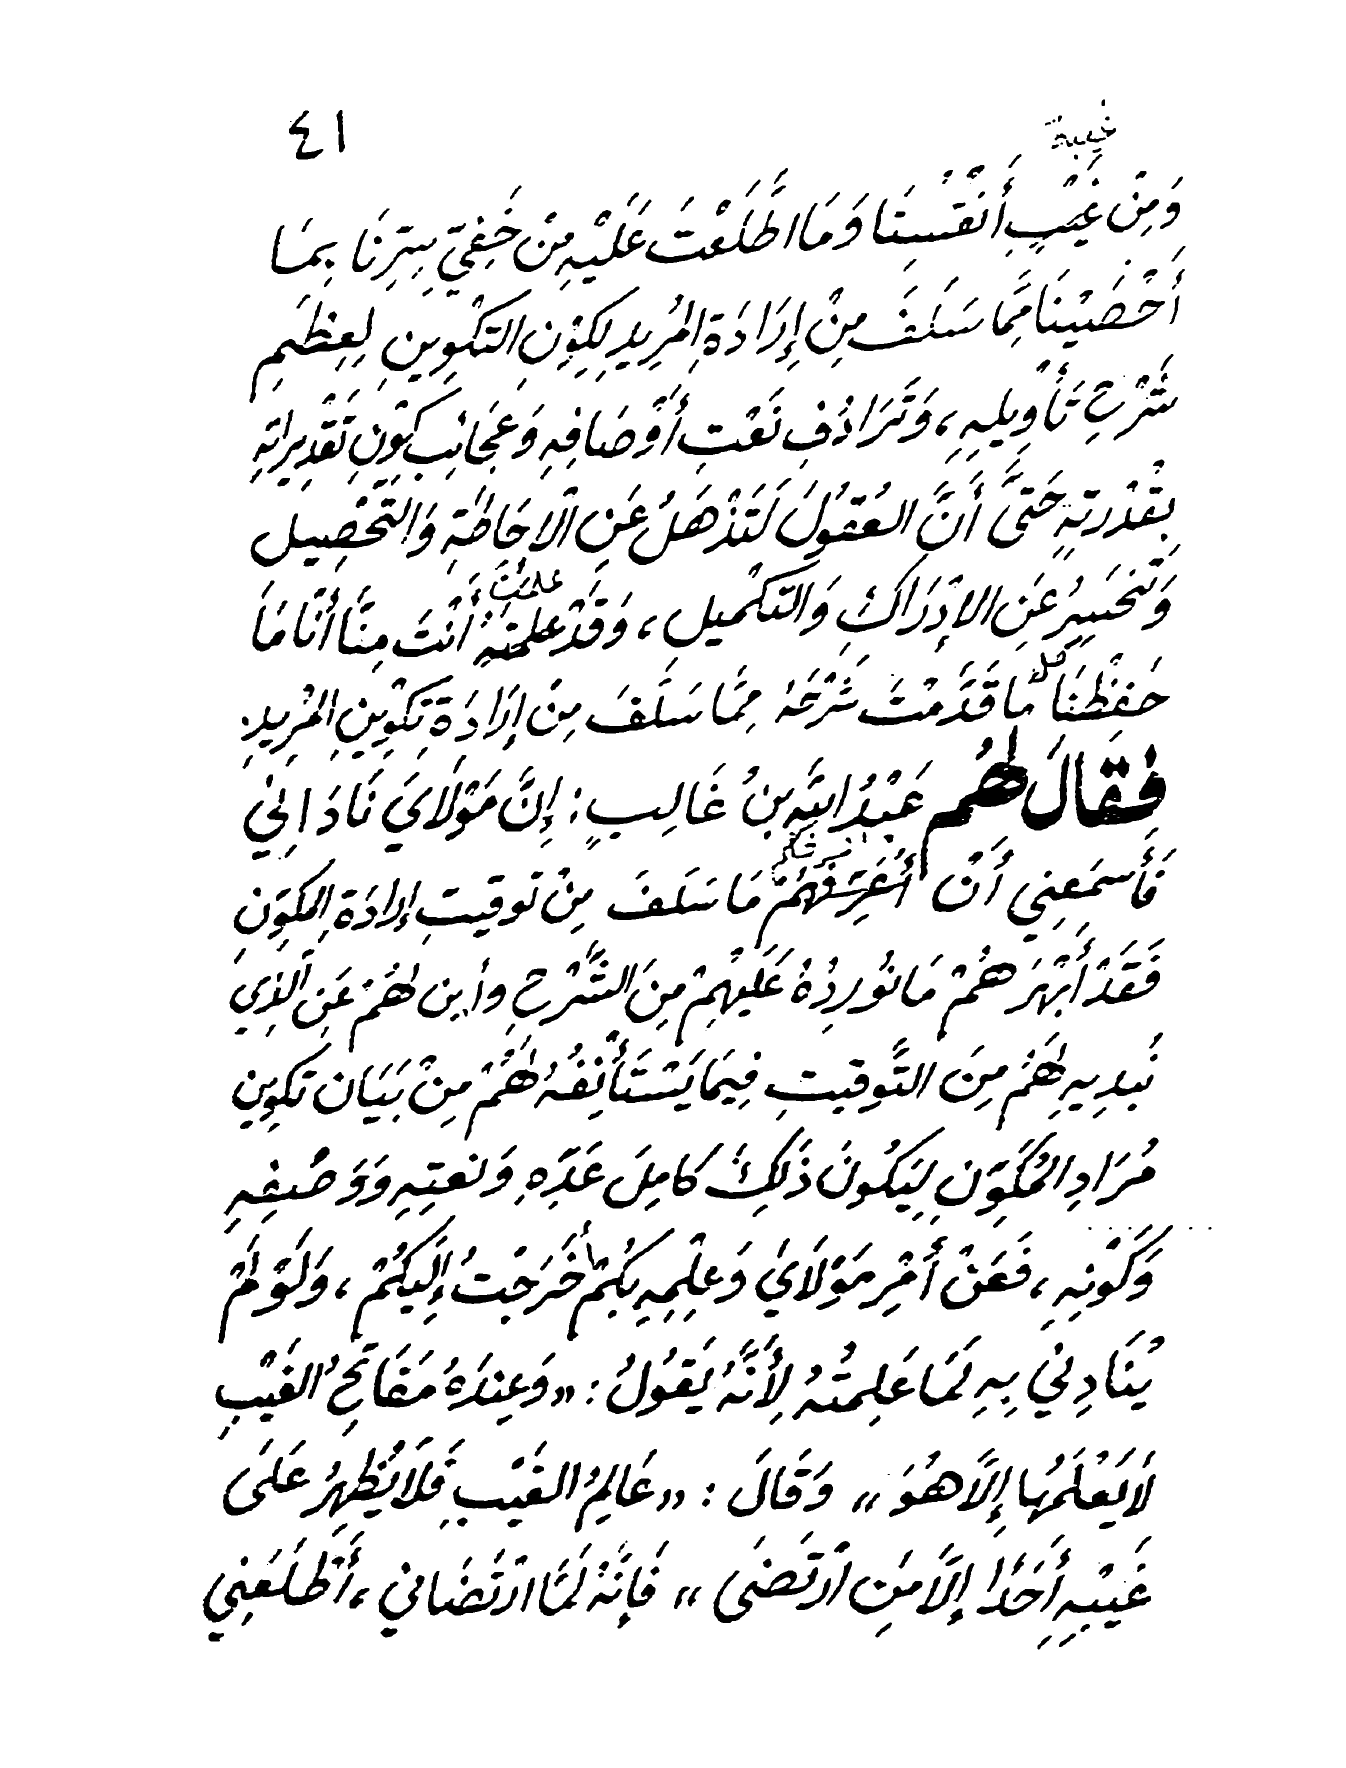 ٤١
غيبة
وَمِنْ غَيْبِ أَنْفُسِنَا وَمَا اطَّلَعْتَ عَلَيْهِ مِنْ خَفِيِّ سِرِّنَا بِمَا
أَحْصَيْنَا مِمَّا سَلَفَ مِنْ إِرَادَةِ المُرِيدِ لِكَوْنِ التَكْوِينِ لِعِظَمِ
شَرْحِ تَأْوِيلِهِ ، وَتَرَادُفِ نَعْتِ أَوْصَافِهِ وَعَجَائِبِ كَوْنِ تَقْدِيرَاتِهِ
بِقُدْرَتِهِ حَتَّى أَنَّ العُقُولَ لَتَذْهَلُ عَنِ الْاحَاطَةِ وَالتَحْصِيل
وَتَحْسِيرُ عَنِ الإدْرَاكِ وَالتَكْميل ، وَقَدْ عَلِمْتَهِ أَنْتَ مِنَّا أَنَّا مَا
علمت
حَفِظْنَا كل مَا قَدَّمْتَ شَرْحَهُ مِمَّا سَلَفَ مِنْ إِرَادَةِ تَكْوِينِ المُرِيدِ
فَقَالَ لَهُم عَبْدُ اللهِ بنُ غَالِبٍ : إِنَّ مَوْلَايَ نَادَانِي
فَأَسْمَعَنِي أَنْ أُعَرِّفَهُمْ مَا سَلَفَ مِنْ تَوقيتِ إرادَةِ المكَوِّنِ
فَقَدْ أَبْهَرَهُمْ مَا نُورِدُهُ عَلَيهِمْ مِنَ الشَّرْحِ وأَبِن لَهُمْ عَنِ الَّذِي
نُبدِيهِ لَهُمْ مِنَ التَّوقيتِ فِيمَا يَسْتَأْنِفُهُ لَهُمْ مِنْ بَيَانِ تكوِينِ
مُرَادِ المُكَوِّنِ لِيَكُونَ ذَلِكَ كَامِلَ عَدِّهِ وَنعتِهِ وَوَصْفِهِ
وَكَوْنِهِ ، فَعَنْ أَمْرِ مَوْلَايَ وَعِلْمِهِ بِكُمْ خَرَجْتُ إِلَيكُمْ ، وَلَوْ لَمْ
يُنَادِنِي بِهِ لَمَا عَلِمْتُهُ لِأَنَّهُ يَقُولُ : «وَعِندَهُ مَفَاتِحُ الغَيْبِ
لَا يَعْلَمُهَا إِلَّا هُوَ» وَقَالَ : «عَالِمُ الغَيْبِ فَلَا يُظهِرُ عَلَى
غَيْبِهِ أَحَدًا إِلَّا مَنِ ارْتَضَى» فَإِنَّهُ لَمَّا ارْتَضَانِي ، أَطْلَعَنِي